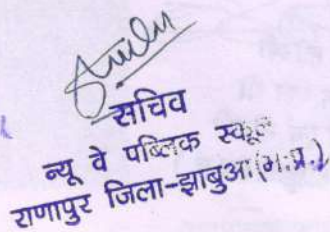 सचिव
न्यू वे पब्लिक स्कूल
राणापुर जिला-झाबुआ (म.प्र.)